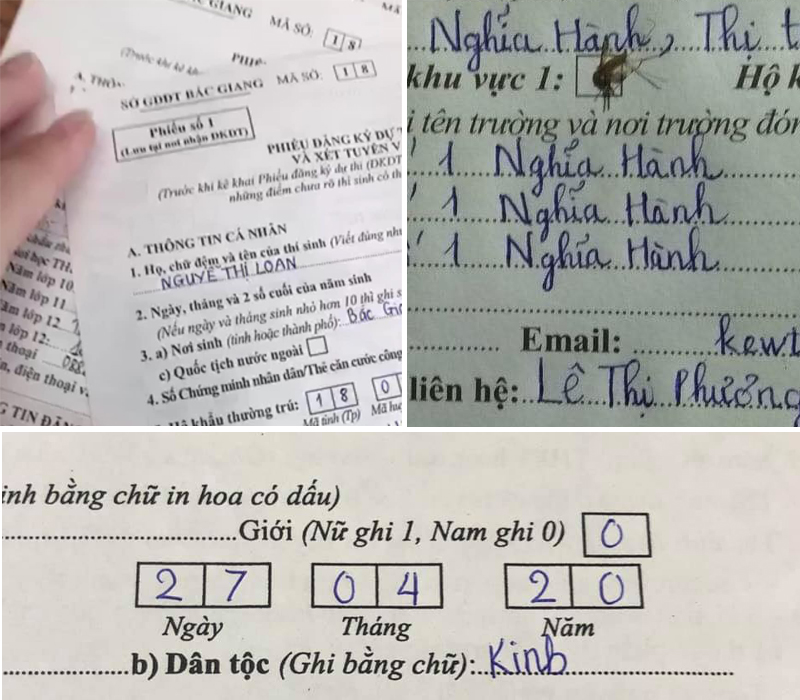 GIANG MÃ SỐ: 1 8
SỞ GDĐT BẮC GIANG MÃ SỐ: 1 8
Phiếu số 1
(Lưu tại nơi nhận ĐKDT)
PHIẾU ĐĂNG KÝ DỰ
VÀ XÉT TUYỂN V
(Trước khi kê khai Phiếu đăng ký dự thi (ĐKDT
những điểm chưa rõ thí sinh có th
A. THÔNG TIN CÁ NHÂN
1. Họ, chữ đệm và tên của thí sinh (Viết đúng như
NGUYÊ THỊ LOAN
2. Ngày, tháng và 2 số cuối của năm sinh
(Nếu ngày và tháng sinh nhỏ hơn 10 thì ghi s
3. a) Nơi sinh (tỉnh hoặc thành phố): Bắc Gia
c) Quốc tịch nước ngoài
4. Số Chứng minh nhân dân/Thẻ căn cước công
khẩu thường trú: 1 8 0
Mã tỉnh (Tp) Mã hu
Năm lớp 10
Năm lớp 11
Năm lớp 12
lớp 12:
thoại
điện thoại v
Nghĩa Hành, Thị t
khu vực 1: Hộ k
i tên trường và nơi trường đón
1 Nghĩa Hành
1 Nghĩa Hành
1 Nghĩa Hành
Email: kewt
liên hệ: Lê Thị Phương
inh bằng chữ in hoa có dấu)
Giới (Nữ ghi 1, Nam ghi 0) 0
2 7 0 4 2 0
Ngày Tháng Năm
b) Dân tộc (Ghi bằng chữ): Kinh